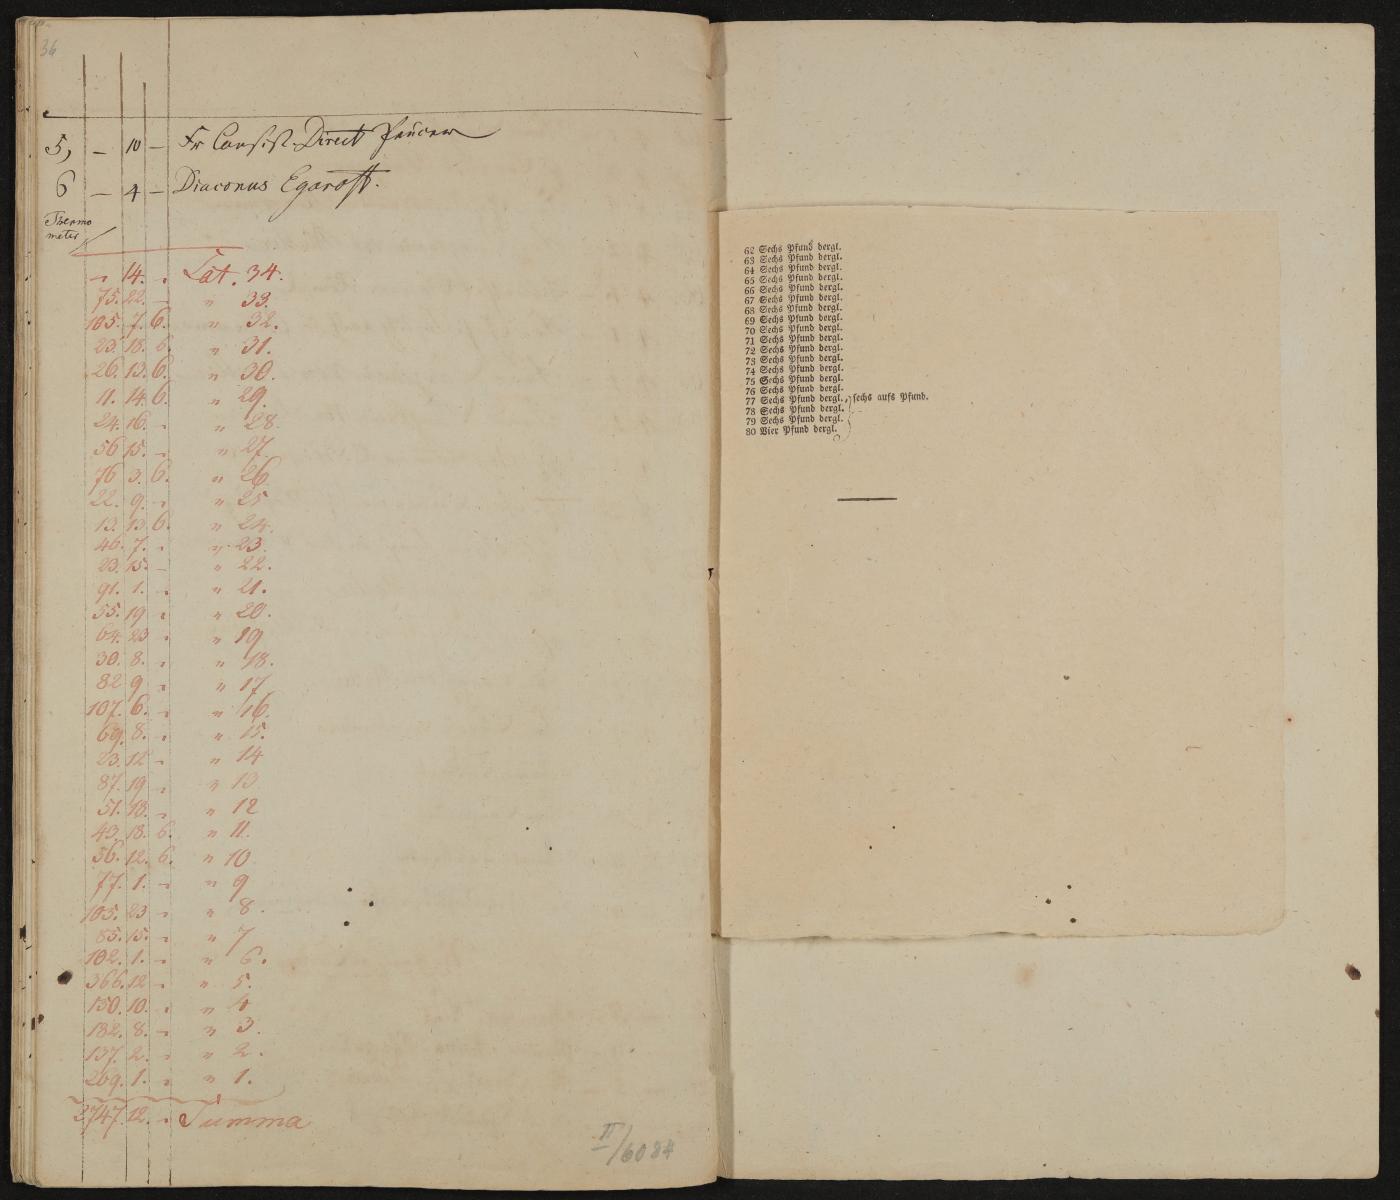 36
5, – 10 – Fr Consist. Direct Peucer
6 – 4 – Diaconus Egaroft.
Thermo
meter
„ 14. „ Lat. 34.
75. 22. – „ 33.
105. 7. 6. „ 32.
23. 18. 6. „ 31.
26. 13. 6. „ 30.
11. 14. 6. „ 29.
24. 16. – „ 28.
56 15. – „ 27.
76 3. 6. „ 26
22. 9. – „ 25
13. 13 6. „ 24.
46. 7. „ „ 23.
23. 15. – „ 22.
91. 1. „ „ 21.
55. 19 „ „ 20.
64. 23 „ „ 19
30. 8. „ „ 18.
82 9 „ „ 17
107. 6. „ „ 16.
69. 8. „ „ 15.
23. 12 „ „ 14
87. 19 „ „ 13
51. 18. „ „ 12
43. 18. 6. „ 11.
56. 12. 6. „ 10
77. 1. – „ 9
105. 23 – „ 8.
85. 15. „ „ 7
102. 1. – „ 6.
366. 12 – „ 5.
150. 10. „ „ 4
182. 8. „ „ 3.
137. 2. „ „ 2.
269. 1. „ „ 1.
2747. 12. „ Summa
II/6084
62 Sechs Pfund dergl.
63 Sechs Pfund dergl.
64 Sechs Pfund dergl.
65 Sechs Pfund dergl.
66 Sechs Pfund dergl.
67 Sechs Pfund dergl.
68 Sechs Pfund dergl.
69 Sechs Pfund dergl.
70 Sechs Pfund dergl.
71 Sechs Pfund dergl.
72 Sechs Pfund dergl.
73 Sechs Pfund dergl.
74 Sechs Pfund dergl.
75 Sechs Pfund dergl.
76 Sechs Pfund dergl.
77 Sechs Pfund dergl. sechs aufs Pfund.
78 Sechs Pfund dergl.
79 Sechs Pfund dergl.
80 Vier Pfund dergl.